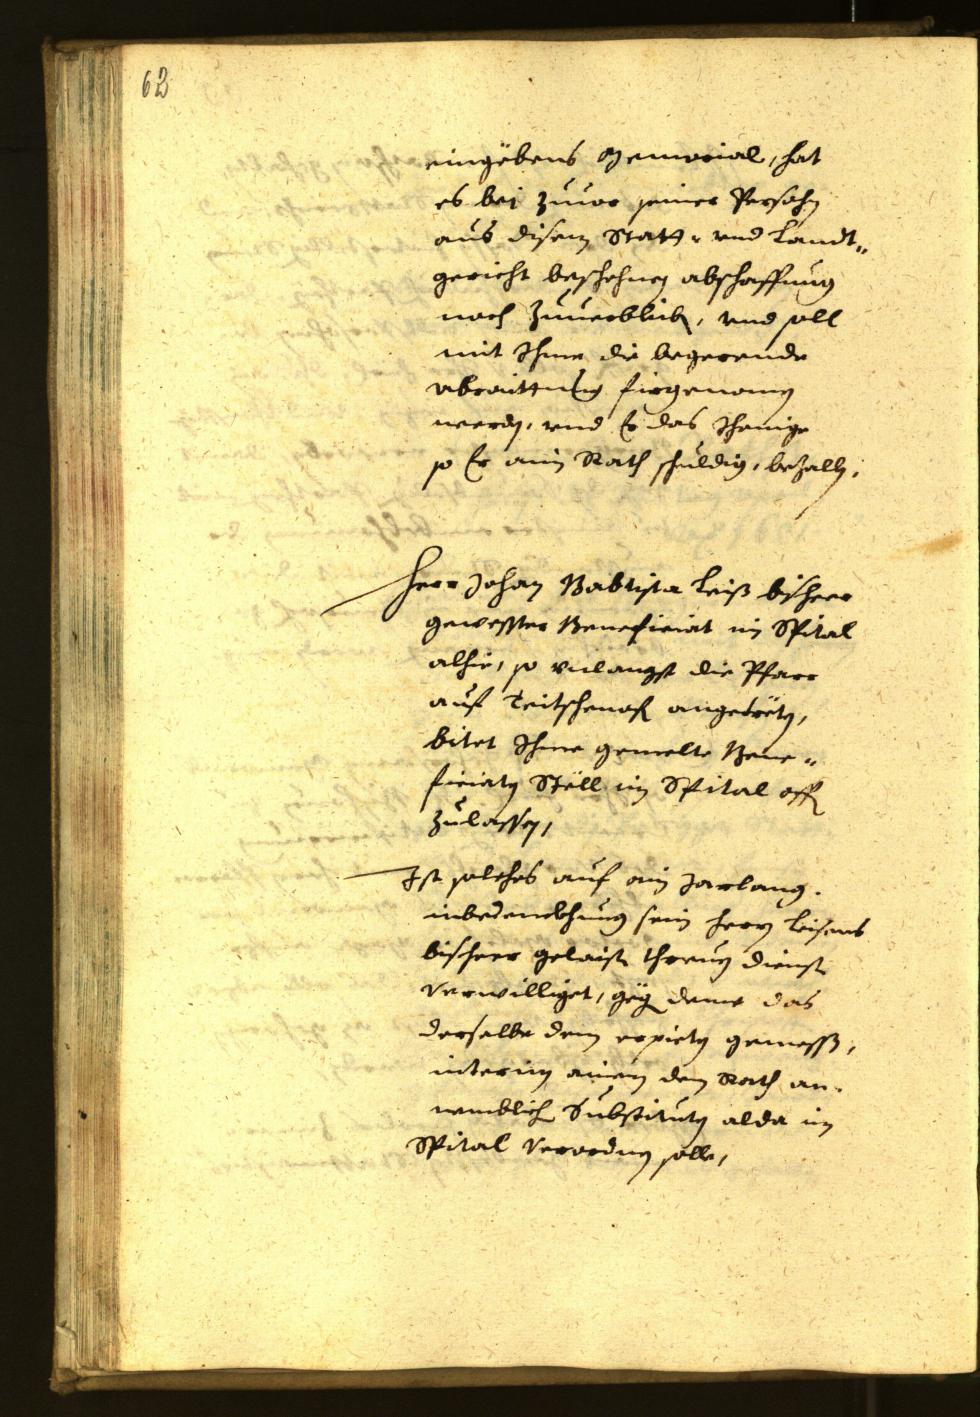 62
eingebens Memorial, hat
es bei zuuor seiner Persohn
aus disem Statt- vnd Landt„
gericht beschehnen abschaffung
noch zuuerbleiben, vnd soll
mit Ihme die begerende
abraittung firgenomen
werden, vnd Er das Jhenige
so Er aim Rath schuldig, bezallen.
Herr Johan Babtista Leiß bisheer
gewesster Beneficiat im Spital
alhie, so vnlangst die Pfarr
auf Teitschenofen angetreten,
bitet Ihme gemelte Bene„
ficiaten Stell im Spital offen
zulassen,
Ist solches auf ain Jarlang.
in bedenckhung sein Herrn Leisens
bisheer gelaiste threuen dienst
verwilliget, gegen deme das
derselbe dem erpieten gemeß,
interim ainen dem Rath an-
nemblichen Substituten alda im
Spital verordnen solle,